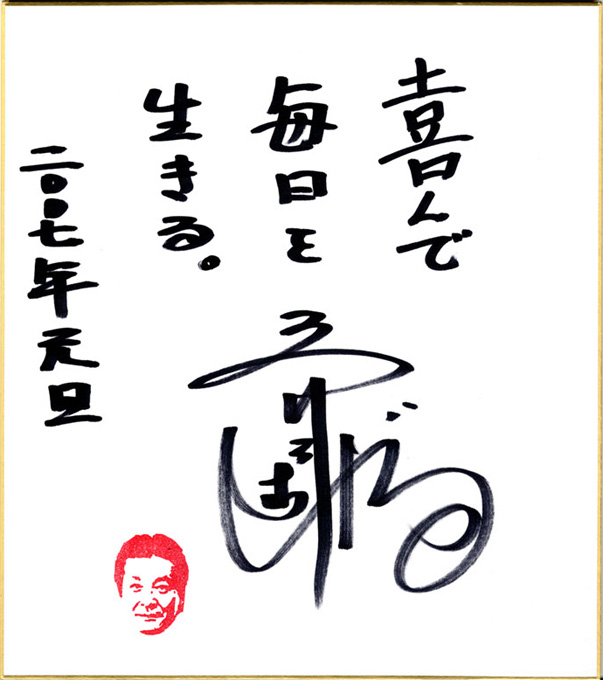 喜んで
毎日を
生きる。
二〇〇七年元旦